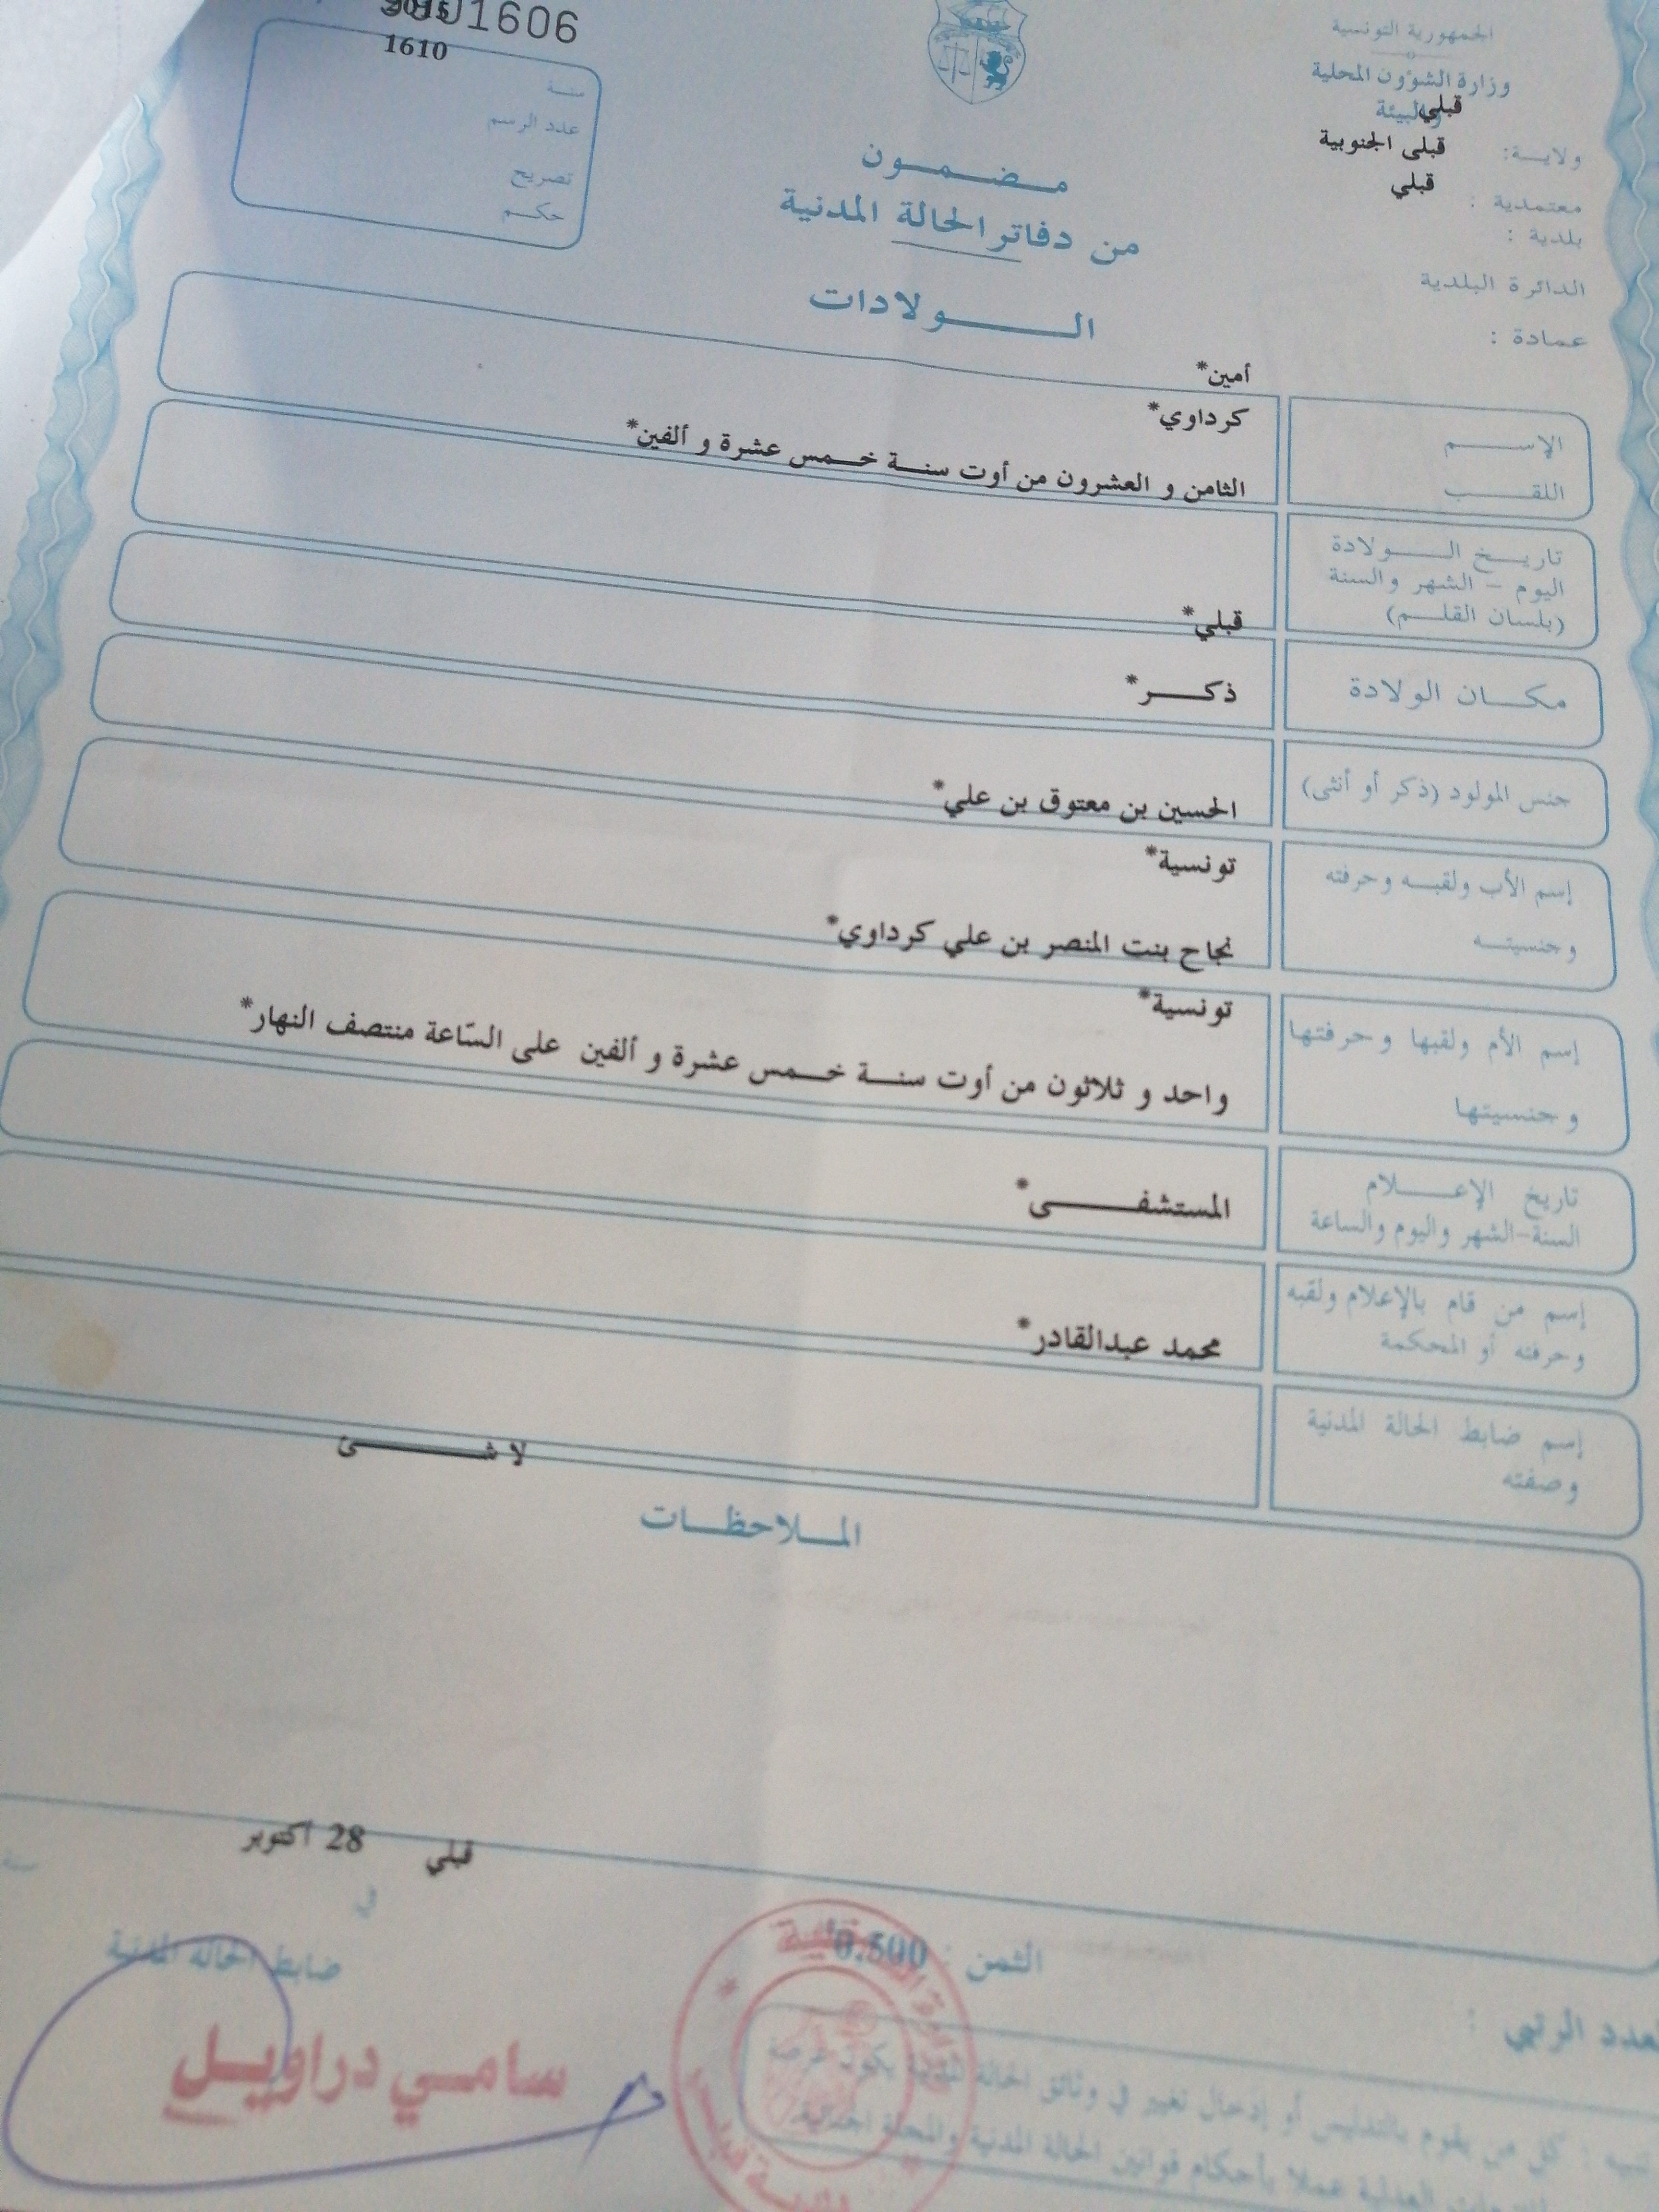 1606
1610
سنة
عدد الرسم
تصريح
حكم
الجمهورية التونسية
وزارة الشؤون المحلية
والبيئة
قبلي
ولاية:
قبلى الجنوبية
معتمدية :
قبلي
بلدية :
الدائرة البلدية
عمادة :
مضمون
من دفاتر الحالة المدنية
الولادات
أمين*
الإسم
كرداوي*
اللقب
الثامن و العشرون من أوت سنة خمس عشرة و ألفين*
تاريخ الولادة
اليوم - الشهر والسنة
(بلسان القلم)
قبلي*
مكان الولادة
ذكر*
جنس المولود (ذكر أو أنثى)
الحسين بن معتوق بن علي*
إسم الأب ولقبه وحرفته
تونسية*
وجنسيته
نجاح بنت المنصر بن علي كرداوي*
إسم الأم ولقبها وحرفتها
تونسية*
وجنسيتها
واحد و ثلاثون من أوت سنة خمس عشرة و ألفين على السّاعة منتصف النهار*
تاريخ الإعلام
السنة-الشهر واليوم والساعة
المستشفى*
إسم من قام بالإعلام ولقبه
وحرفته أو المحكمة
محمد عبدالقادر*
إسم ضابط الحالة المدنية
وصفته
لا شئ
الملاحظات
قبلي 28 اكتوبر
في
سنة
ضابط الحالة المدنية
سامي دراويل
الثمن : 0.500
العدد الرتبي :
تنبيه : كل من يقوم بالتدليس أو إدخال تغيير في وثائق الحالة المدنية يكون عرضة
العدلية عملا بأحكام قوانين الحالة المدنية والمجلة الجنائية.